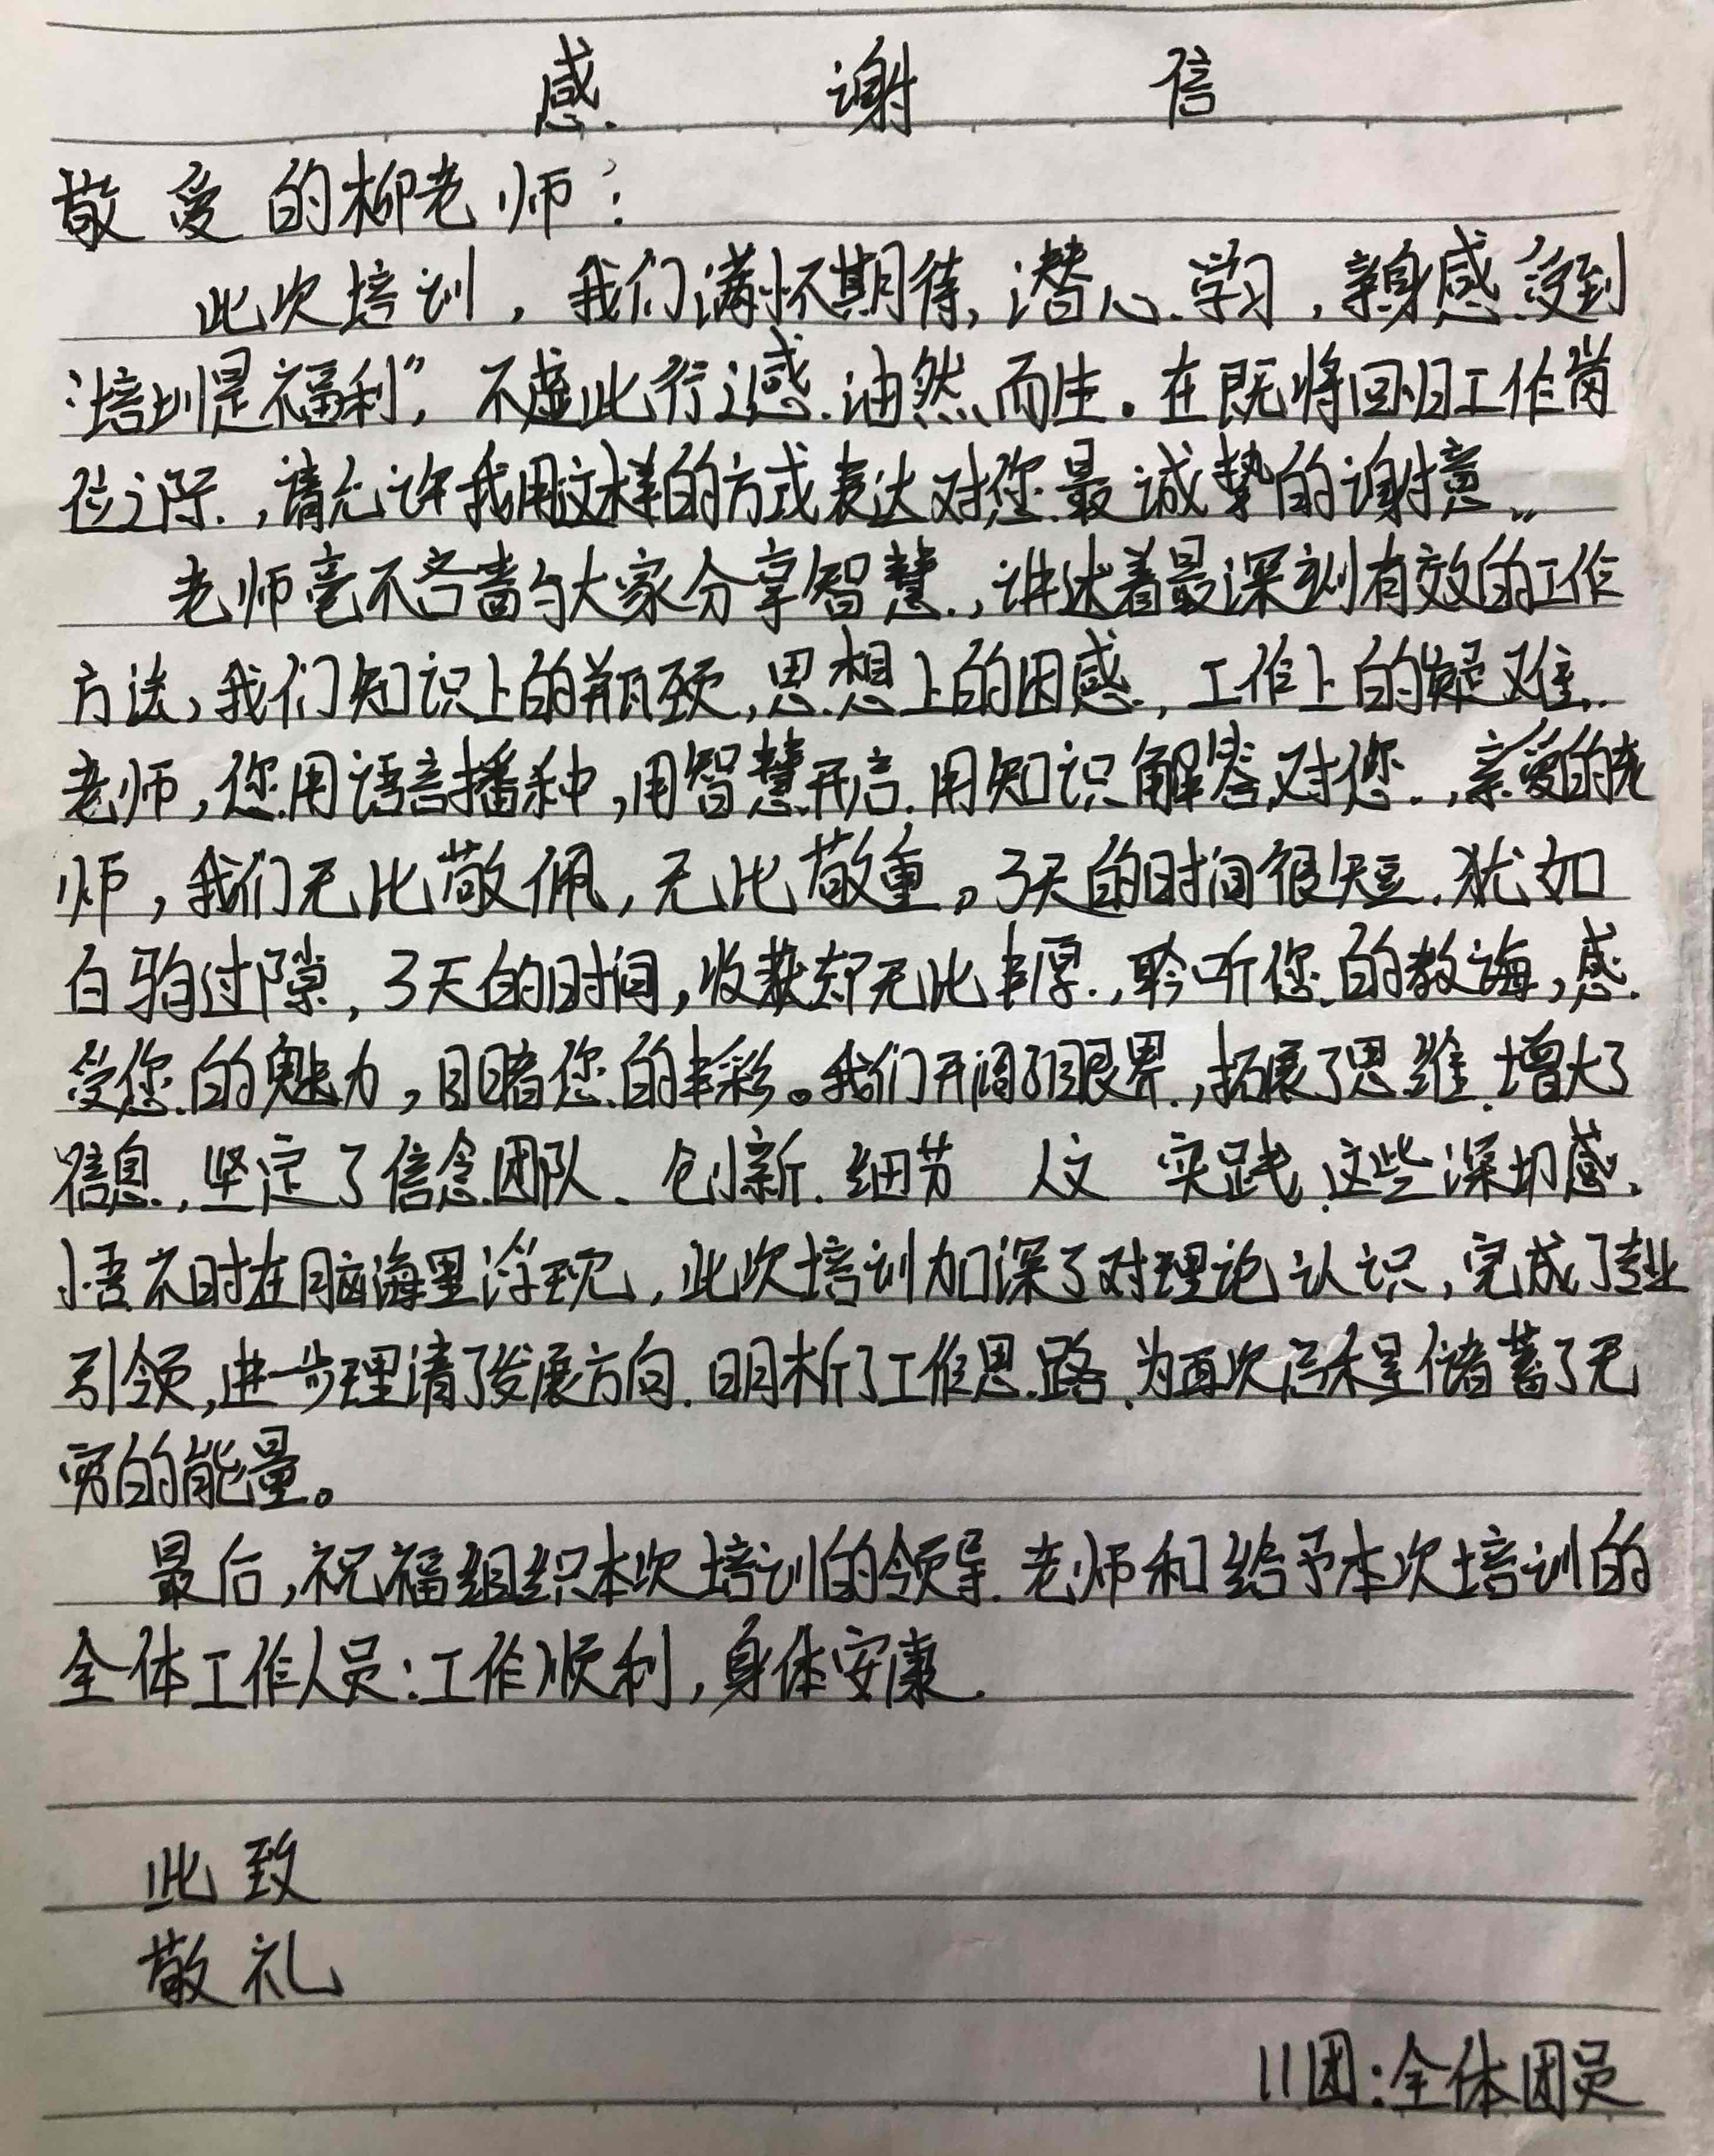 感谢信
敬爱的柳老师：
此次培训，我们满怀期待，潜心学习，亲身感受到
“培训是福利”，不虚此行之感油然而生。在既将回归工作岗
位之际，请允许我用这样的方式表达对您最诚挚的谢意。
老师毫不吝啬与大家分享智慧，讲述着最深刻有效的工作
方法，我们知识上的瓶颈，思想上的困惑，工作上的疑难．
老师，您用语言播种，用智慧开启．用知识解答，对您，亲爱的老
师，我们无比敬佩，无比敬重。3天的时间很短．犹如
白驹过隙，3天的时间，收获却无比丰厚，聆听您的教诲，感
受您的魅力，目睹您的丰彩。我们开阔了眼界，拓展了思维．增大了
信息，坚定了信念团队、创新．细节 人文 实践．这些深切感
悟不时在脑海里浮现，此次培训加深了对理论认识，完成了专业
引领，进一步理清了发展方向．明析了工作思路、为再次启程储蓄了无
穷的能量。
最后，祝福组织本次培训的领导．老师和给予本次培训的
全体工作人员：工作顺利，身体安康．
此致
敬礼
11团：全体团员